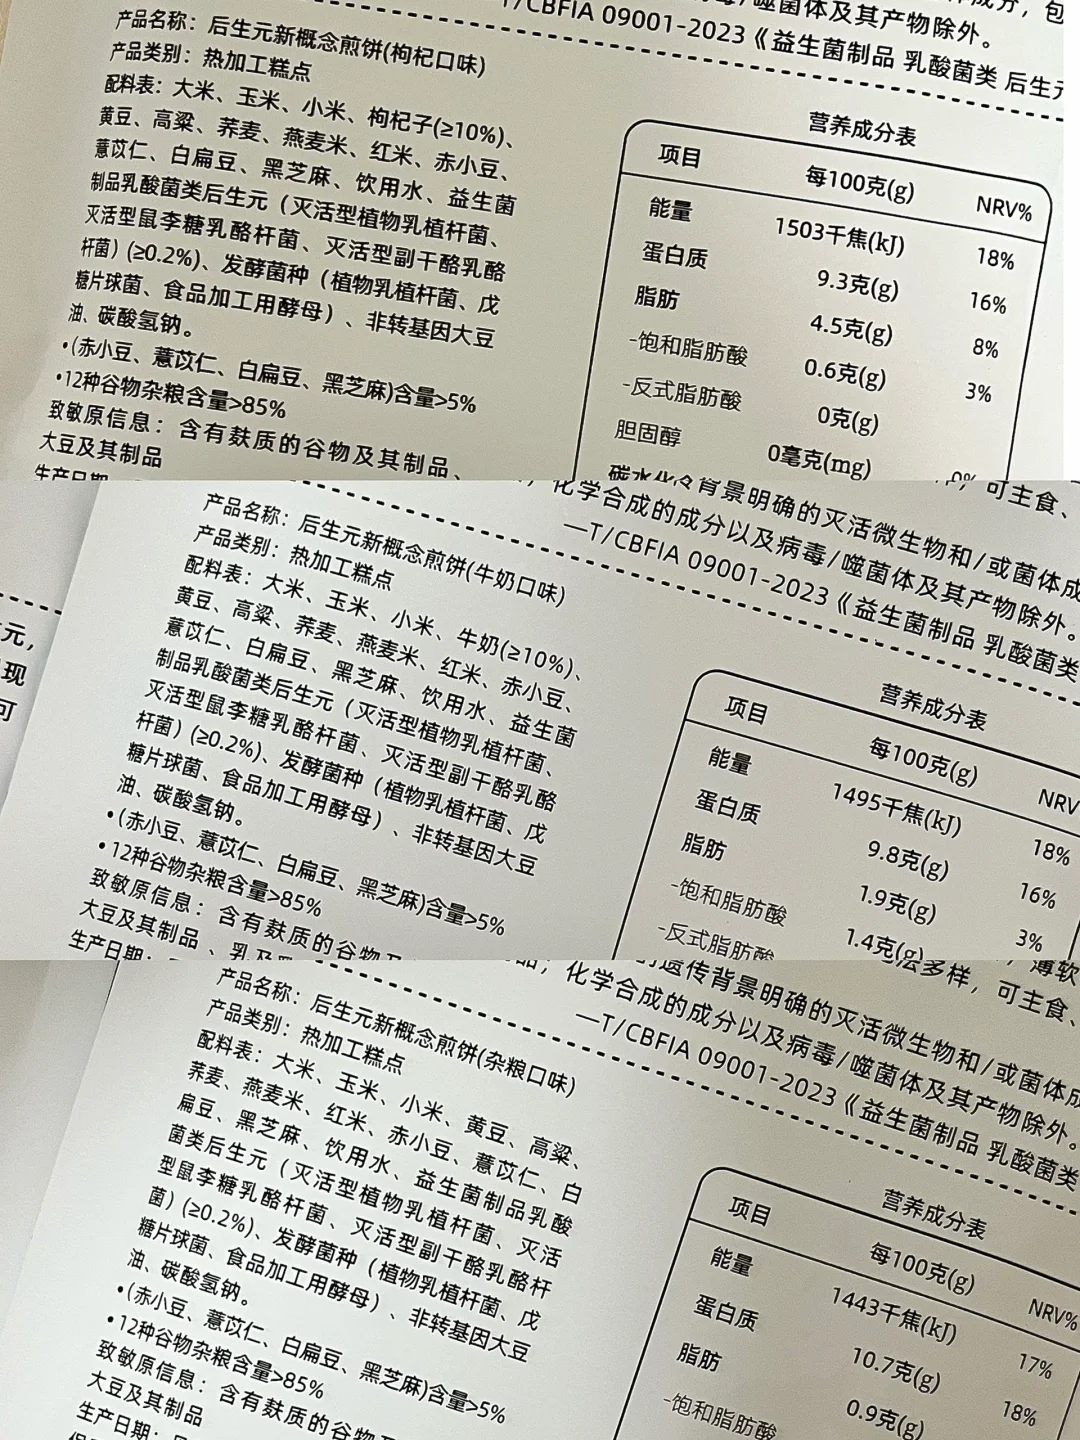 养成分，包
病毒/噬菌体及其产物除外。
T/CBFIA 09001-2023《益生菌制品 乳酸菌类 后生元
产品名称：后生元新概念煎饼(枸杞口味)
产品类别：热加工糕点
配料表：大米、玉米、小米、枸杞子(≥10%)、
黄豆、高粱、荞麦、燕麦米、红米、赤小豆、
薏苡仁、白扁豆、黑芝麻、饮用水、益生菌
制品乳酸菌类后生元（灭活型植物乳植杆菌、
灭活型鼠李糖乳酪杆菌、灭活型副干酪乳酪
杆菌）(≥0.2%)、发酵菌种（植物乳植杆菌、戊
糖片球菌、食品加工用酵母）、非转基因大豆
油、碳酸氢钠。
•(赤小豆、薏苡仁、白扁豆、黑芝麻)含量>5%
•12种谷物杂粮含量>85%
致敏原信息：含有麸质的谷物及其制品、
大豆及其制品
生产日期
营养成分表
项目 每100克(g) NRV%
能量 1503千焦(kJ) 18%
蛋白质 9.3克(g) 16%
脂肪 4.5克(g) 8%
-饱和脂肪酸 0.6克(g) 3%
-反式脂肪酸 0克(g)
胆固醇 0毫克(mg) 0%
碳水化
可主食、
化学合成的成分以及病毒/噬菌体及其产物除外。
背景明确的灭活微生物和/或菌体成
—T/CBFIA 09001-2023《益生菌制品 乳酸菌类
元，
现
可
产品名称：后生元新概念煎饼(牛奶口味)
产品类别：热加工糕点
配料表：大米、玉米、小米、牛奶(≥10%)、
黄豆、高粱、荞麦、燕麦米、红米、赤小豆、
薏苡仁、白扁豆、黑芝麻、饮用水、益生菌
制品乳酸菌类后生元（灭活型植物乳植杆菌、
灭活型鼠李糖乳酪杆菌、灭活型副干酪乳酪
杆菌）(≥0.2%)、发酵菌种（植物乳植杆菌、戊
糖片球菌、食品加工用酵母）、非转基因大豆
油、碳酸氢钠。
•(赤小豆、薏苡仁、白扁豆、黑芝麻)含量>5%
•12种谷物杂粮含量>85%
致敏原信息：含有麸质的谷物及
大豆及其制品、乳及
生产日期：
营养成分表
项目 每100克(g) NRV
能量 1495千焦(kJ) 18%
蛋白质 9.8克(g) 16%
脂肪 1.9克(g) 3%
-饱和脂肪酸 1.4克(g)
-反式脂肪酸
薄软
法多样，可主食、
的遗传背景明确的灭活微生物和/或菌体成
化学合成的成分以及病毒/噬菌体及其产物除外。
—T/CBFIA 09001-2023《益生菌制品 乳酸菌类
产品名称：后生元新概念煎饼(杂粮口味)
产品类别：热加工糕点
配料表：大米、玉米、小米、黄豆、高粱、
荞麦、燕麦米、红米、赤小豆、薏苡仁、白
扁豆、黑芝麻、饮用水、益生菌制品乳酸
菌类后生元（灭活型植物乳植杆菌、灭活
型鼠李糖乳酪杆菌、灭活型副干酪乳酪杆
菌）(≥0.2%)、发酵菌种（植物乳植杆菌、戊
糖片球菌、食品加工用酵母）、非转基因大豆
油、碳酸氢钠。
•(赤小豆、薏苡仁、白扁豆、黑芝麻)含量>5%
•12种谷物杂粮含量>85%
致敏原信息：含有麸质的谷物及其
大豆及其制品
生产日期：
营养成分表
项目 每100克(g) NRV%
能量 1443千焦(kJ) 17%
蛋白质 10.7克(g) 18%
脂肪 0.9克(g)
-饱和脂肪酸